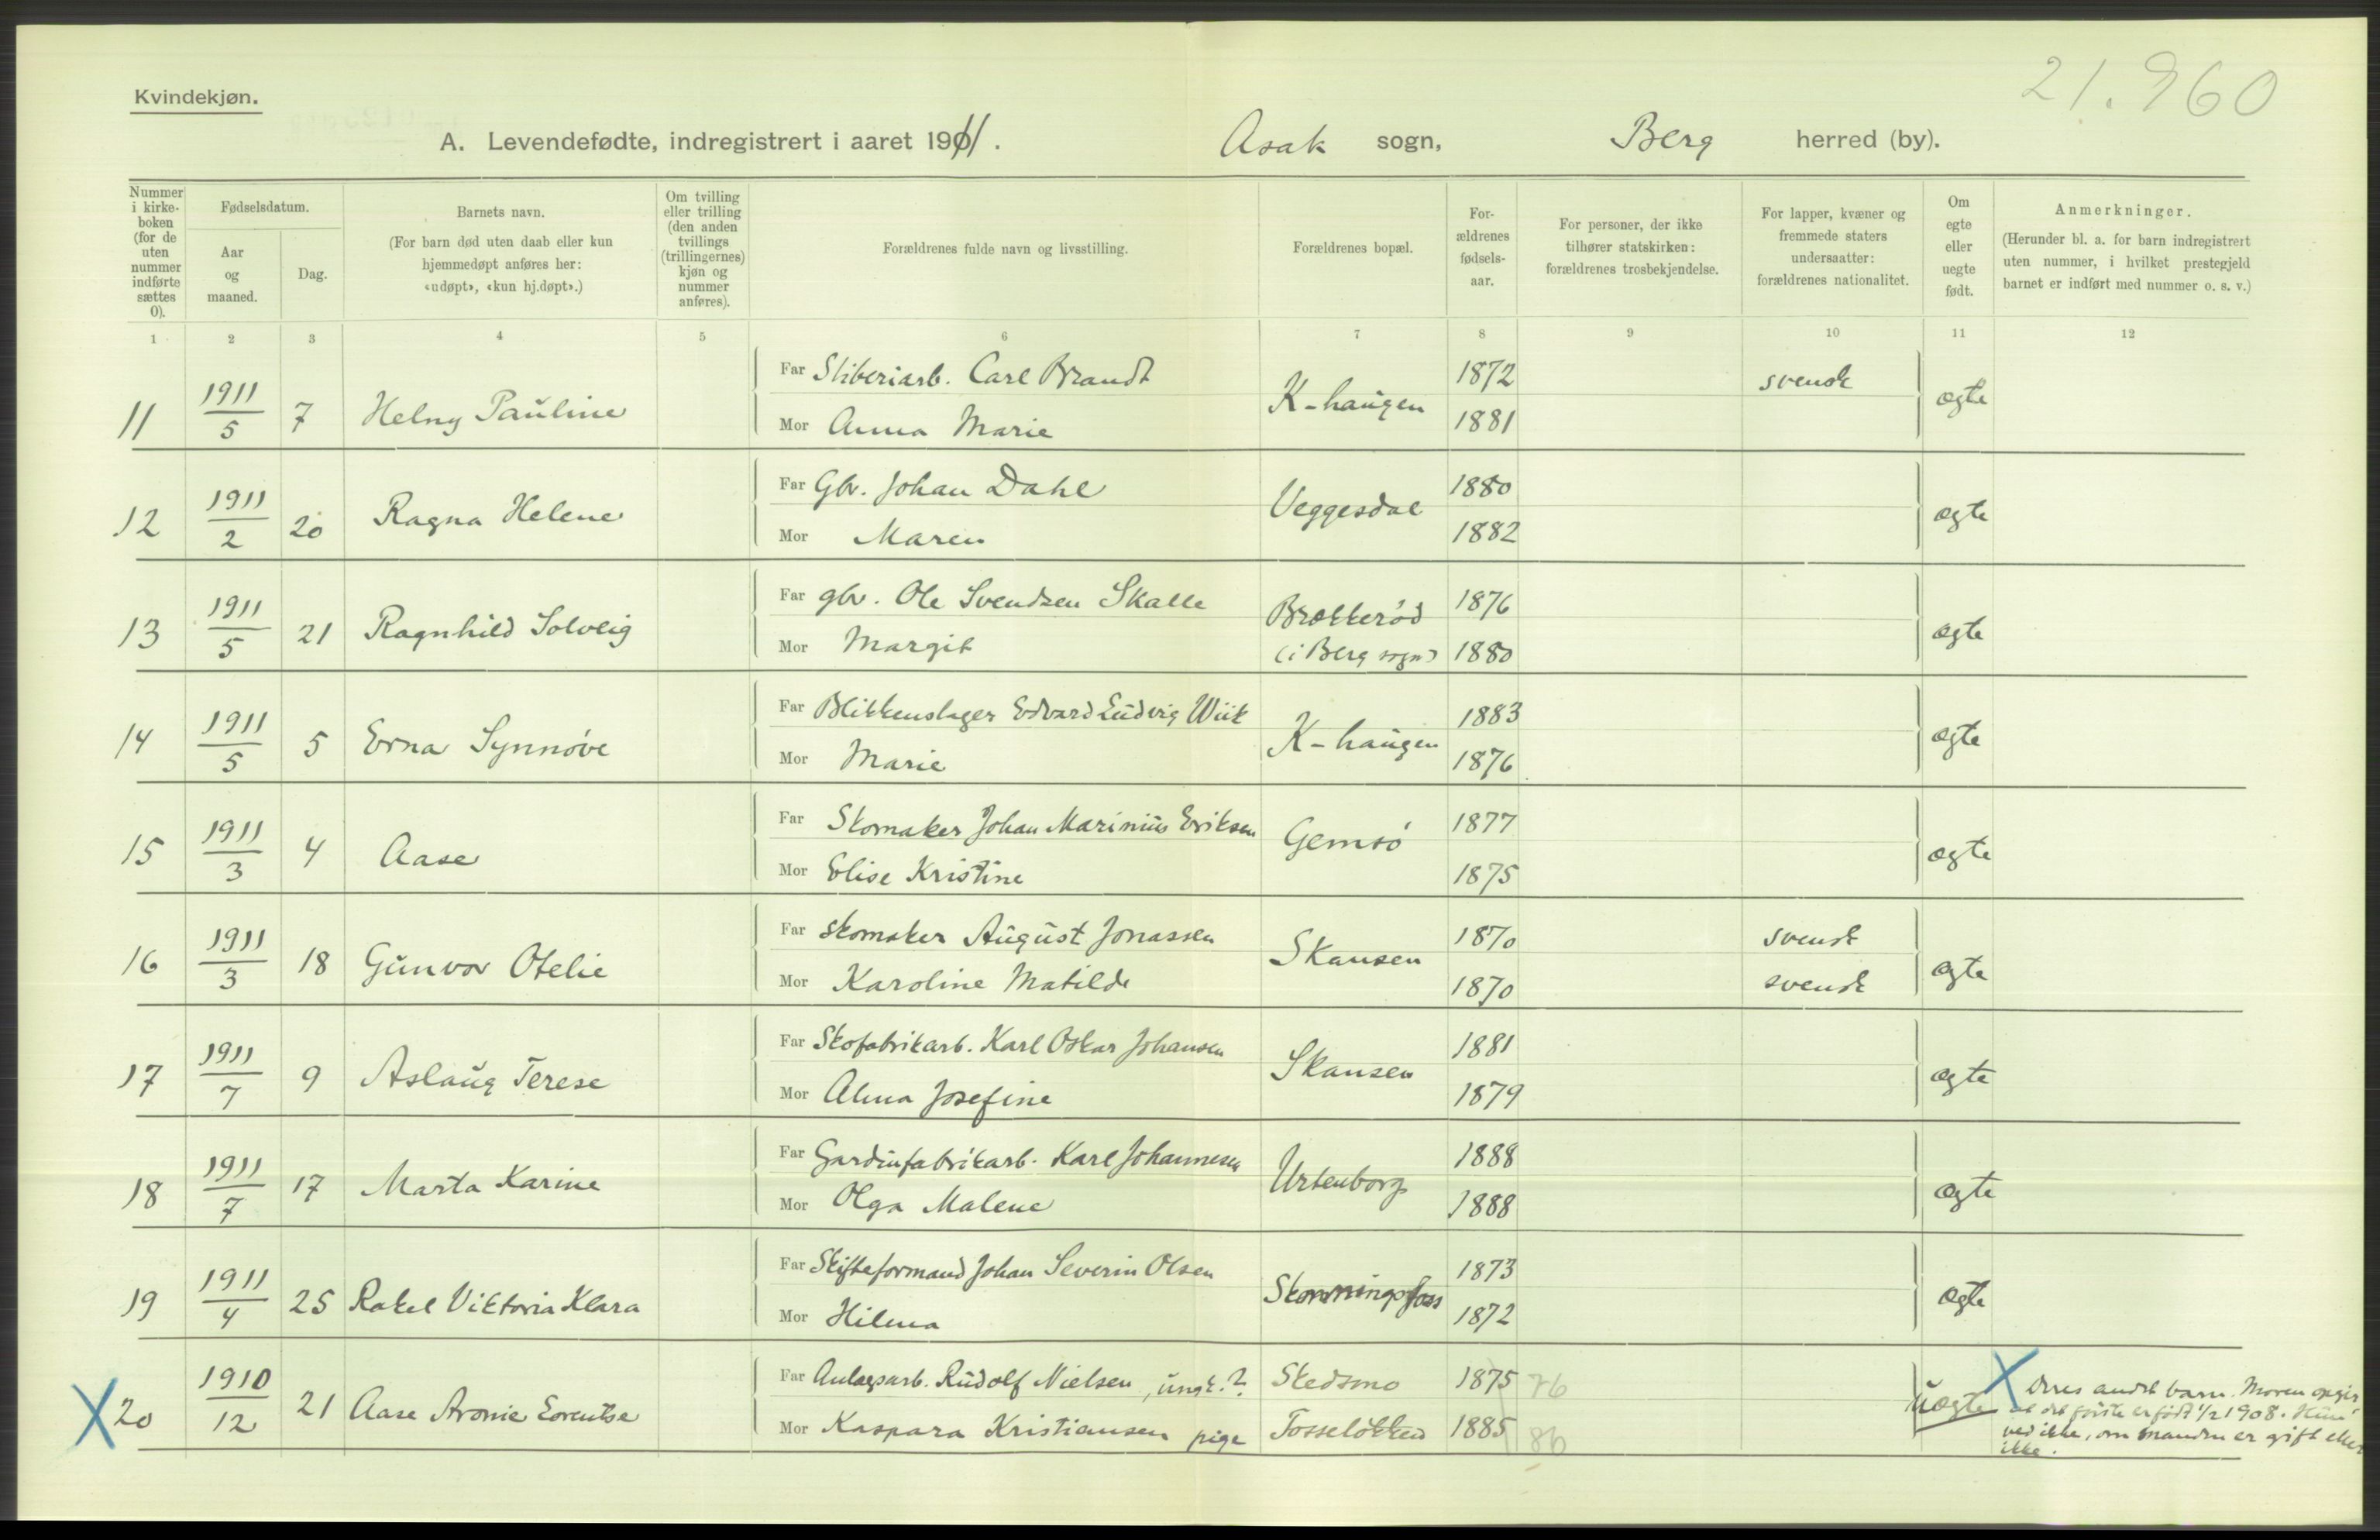 21.960
Kvindekjøn.
A. Levendefødte, indregistrert i aaret 1911. Asak sogn, Berg herred (by).
Nummer i kirke-boken (for de uten nummer indførte sættes 0).
Fødselsdatum.
Aar og maaned.
Dag.
Barnets navn.
(For barn død uten daab eller kun hjemmedøpt anføres her: «udøpt», «kun hj.døpt».)
Om tvilling eller trilling (den anden tvillings (trillingernes) kjøn og nummer anføres).
Forældrenes fulde navn og livsstilling.
Forældrenes bopæl.
For-ældrenes fødsels-aar.
For personer, der ikke tilhører statskirken: forældrenes trosbekjendelse.
For lapper, kvæner og fremmede staters undersaatter: forældrenes nationalitet.
Om egte eller uegte født.
Anmerkninger.
(Herunder bl. a. for barn indregistrert uten nummer, i hvilket prestegjeld barnet er indført med nummer o. s. v.)
1 2 3 4 5 6 7 8 9 10 11 12
Far Sliberiarb. Carl Brandt 1872 svensk
11 1911/5 7 Helny Pauline K-haugen ægte
Mor Anna Marie 1881
Far Gbr. Johan Dahl 1880
12 1911/2 20 Ragna Helene Veggesdal ægte
Mor Maren 1882
Far gbr. Ole Svendsen Skalle Brækkerød 1876
13 1911/5 21 Ragnhild Solveig ægte
Mor Margit (i Berg sogn) 1880
Far Blikkenslager Edvard Ludvig Wiik 1883
14 1911/5 5 Erna Synnøve K-haugen ægte
Mor Marie 1876
Far Skomaker Johan Marinius Eriksen 1877
15 1911/3 4 Aase Gemsø ægte
Mor Elise Kristine 1875
Far skomaker August Jonassen 1870 svensk
16 1911/3 18 Gunvor Otelie Skansen ægte
Mor Karoline Matilde 1870 svensk
Far Skofabrikarb. Karl Oskar Johansen 1881
17 1911/7 9 Aslaug Terese Skansen ægte
Mor Alma Josefine 1879
Far Gardinfabrikarb. Karl Johannesen 1888
18 1911/7 17 Marta Karine Urtenborg ægte
Mor Olga Malene 1888
Far Skifteformand Johan Severin Olsen 1873
19 1911/4 25 Rakel Viktoria Klara Skonningsfoss ægte
Mor Hilma 1872
Far Anlægsarb. Rudolf Nielsen, ungk.? Skedsmo 1875 76
X 20 1910/12 21 Aase Aronie uægte
Mor Kaspara Kristiansen pige Tosseløkken 1885 86
X Deres andet barn. Moren opgir
at det første er født 1/2 1908. Hun
ved ikke, om manden er gift eller
ikke.